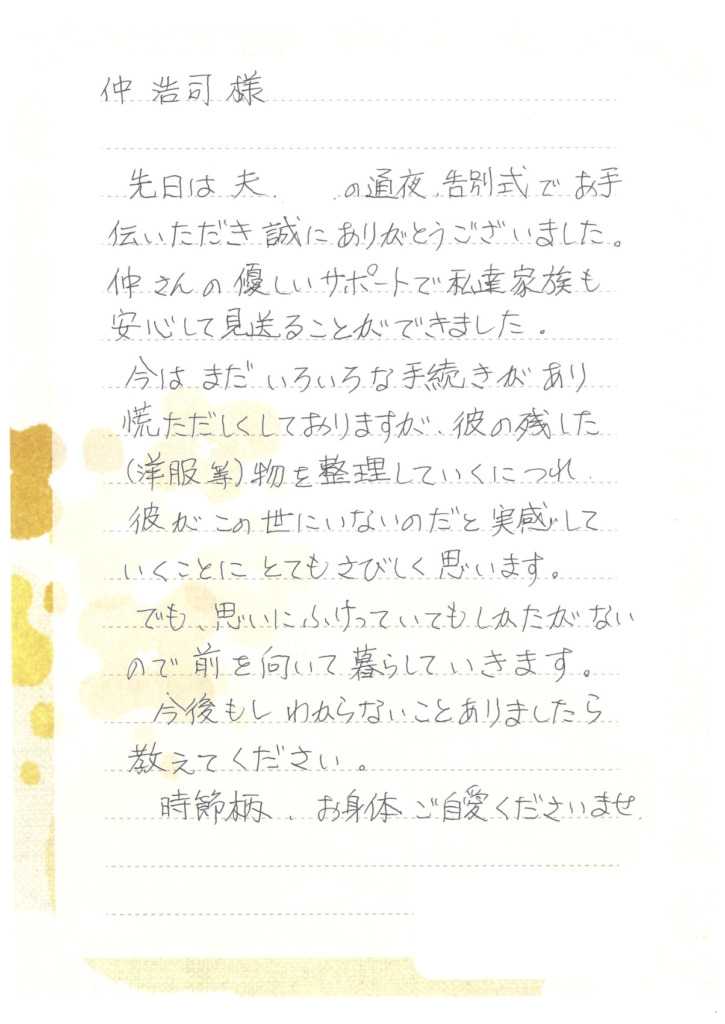 仲 浩司 様
先日は 夫 の通夜、告別式で お手
伝いただき 誠に ありがとうございました。
仲さんの優しいサポートで私達家族も
安心して見送ることができました。
今は まだ いろいろな手続きが あり
慌ただしくしておりますが、彼の残した
(洋服等)物を整理していくにつれ
彼が この世にいないのだと 実感して
いくことに とてもさびしく思います。
でも、思いにふけっていてもしかたがない
ので 前を向いて暮らしていきます。
今後もし わからないことありましたら
教えてください。
時節柄、お身体ご自愛くださいませ.